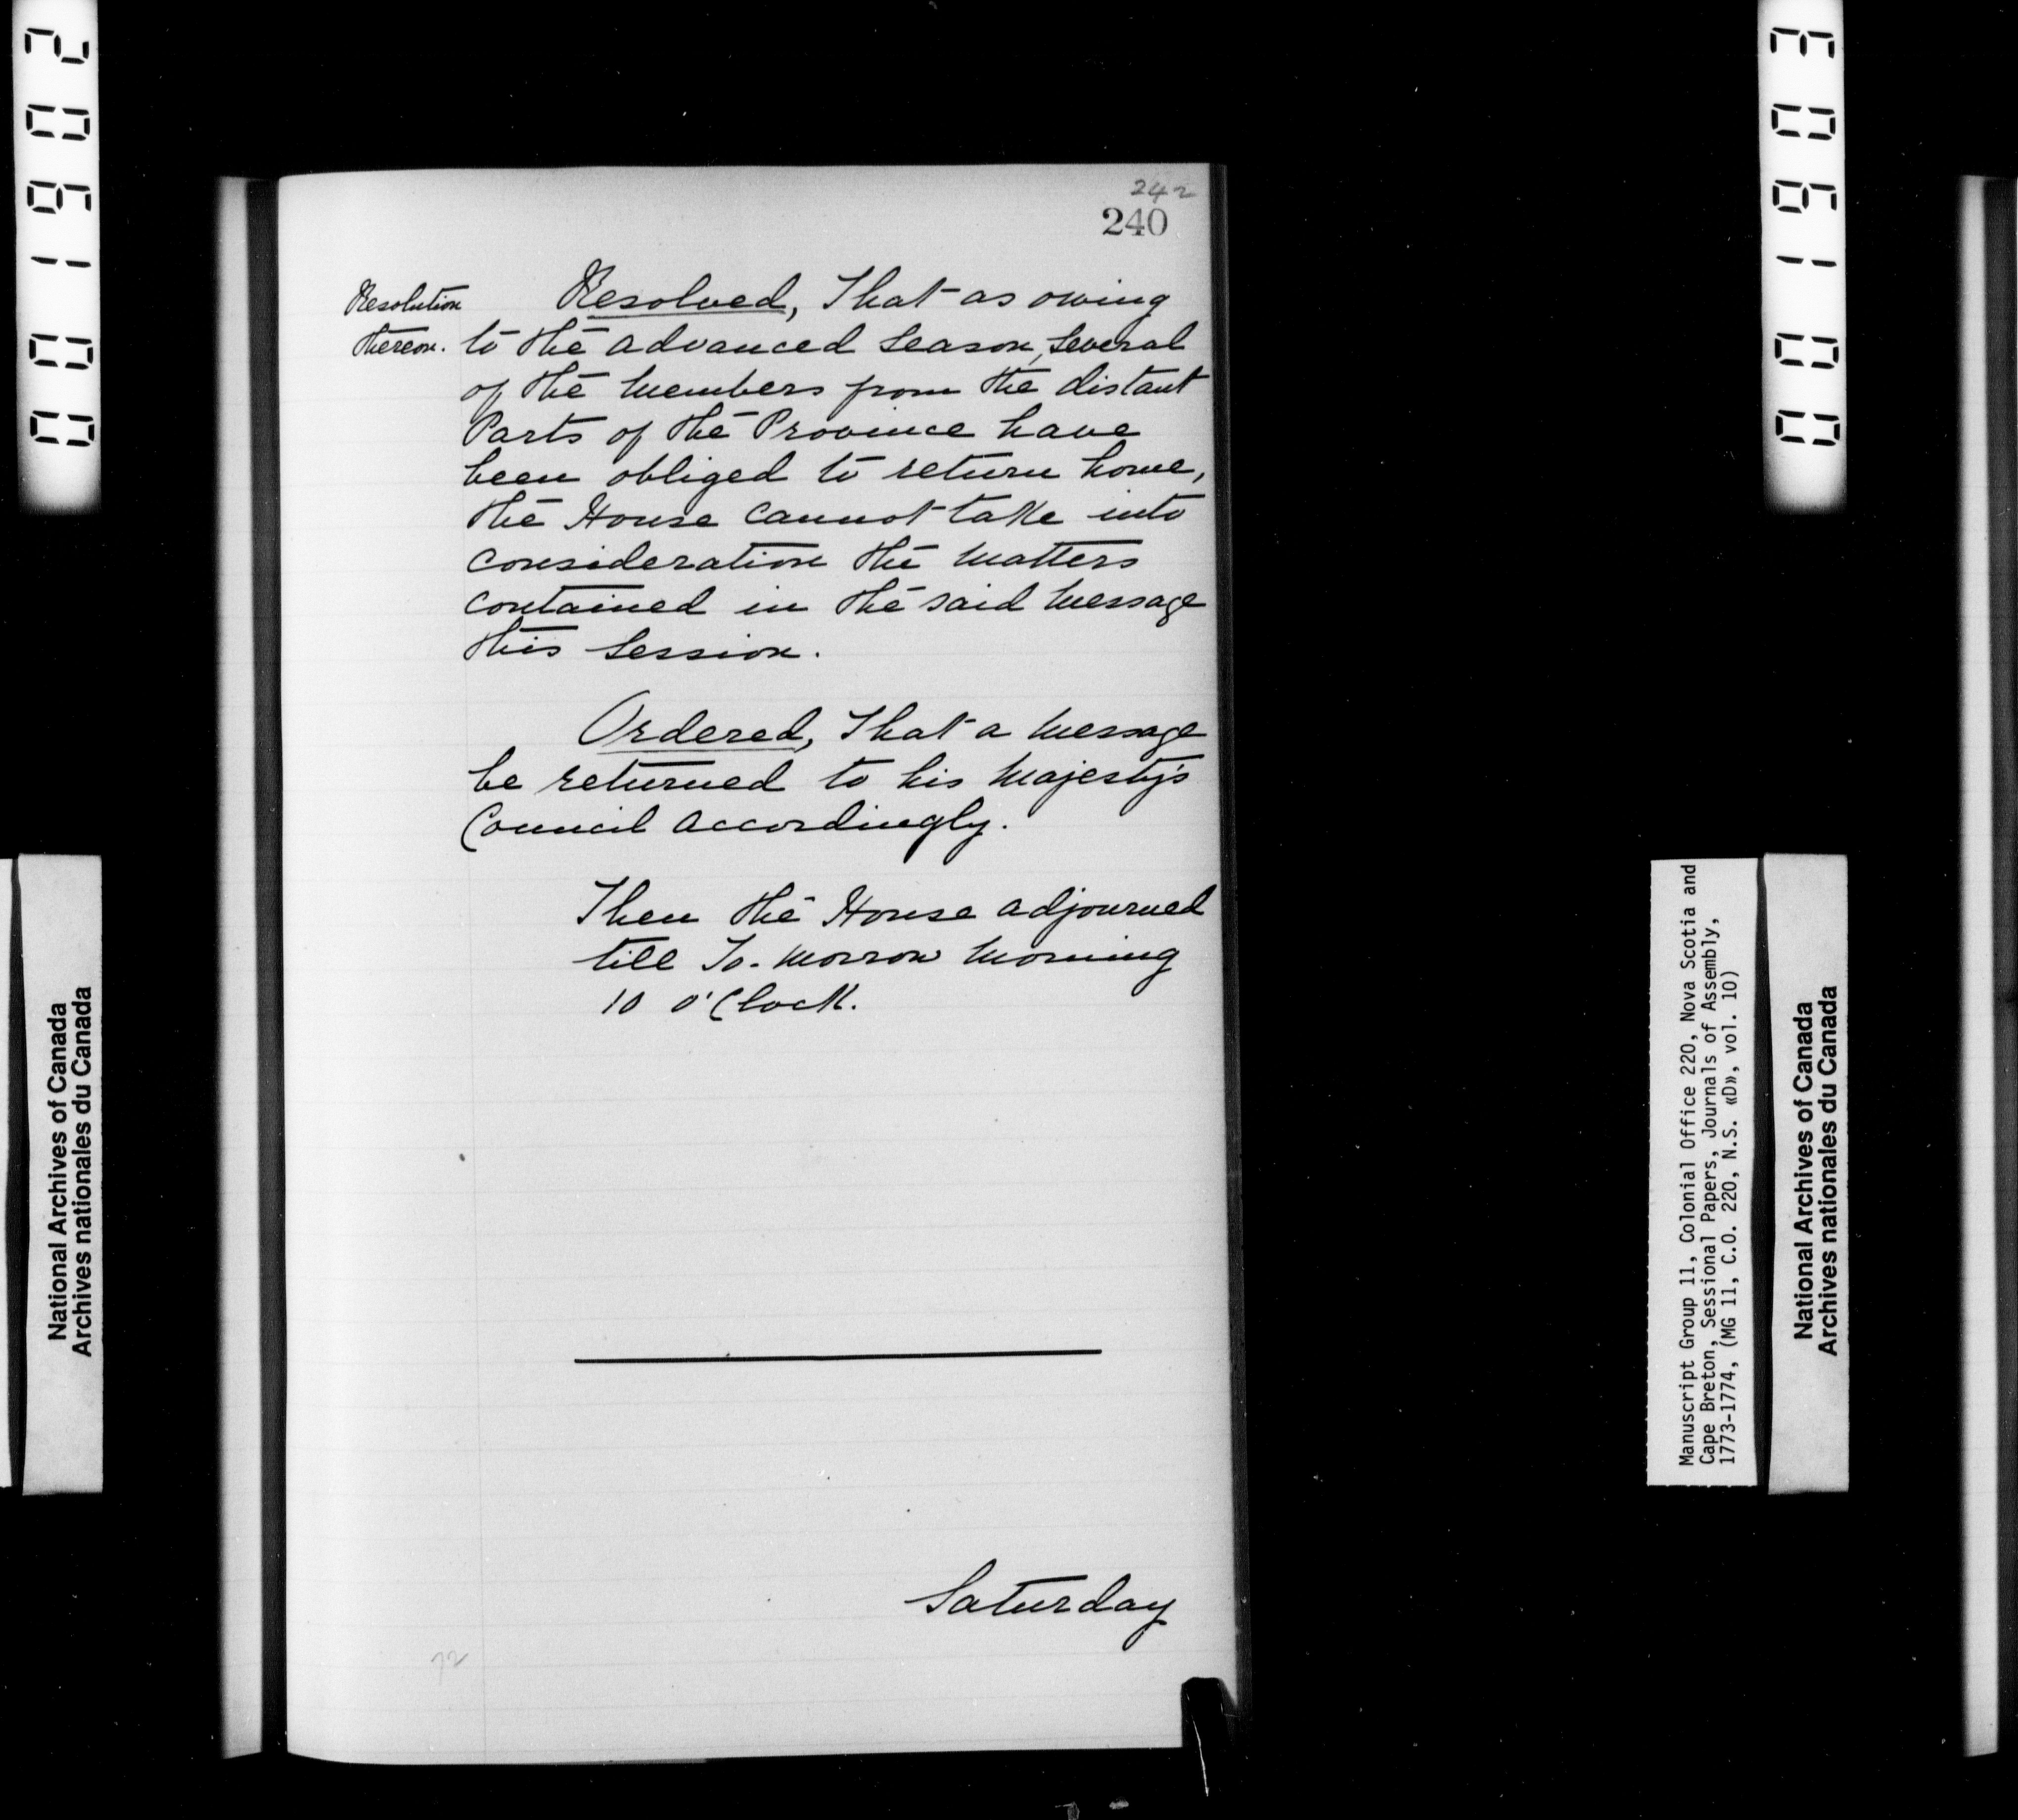 242
240
Resolution
thereon.
Resolved, That as owing
to the advanced Season, several
of the Members from the distant
Parts of the Province have
been obliged to return home,
the House cannot take into
consideration the Matters
contained in the said Message
this Session.
Ordered, That a Message
be returned to his Majesty's
Council accordingly.
Then the House adjourned
till To-Morrow Morning
10 o'Clock.
Saturday
72
National Archives of Canada
Archives nationales du Canada
Manuscript Group 11, Colonial Office 220, Nova Scotia and
Cape Breton, Sessional Papers, Journals of Assembly,
1773-1774, (MG 11, C.O. 220, N.S. «D», vol. 10)
National Archives of Canada
Archives nationales du Canada